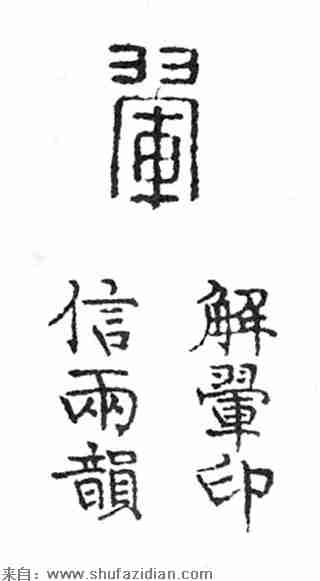 翬
解翬印
信兩韻
来自：www.shufazidian.com